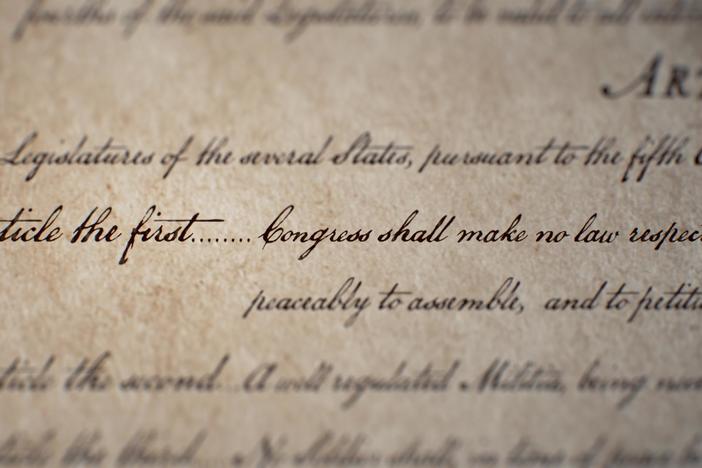 fourths of the said Legislatures, to be valid to all
ART
Legislatures of the several States, pursuant to the fifth
ticle the first........ Congress shall make no law respec
peaceably to assemble, and to petiti
ticle the second. A well regulated Militia, being
ticle the third. No Soldier shall, in time of peace be